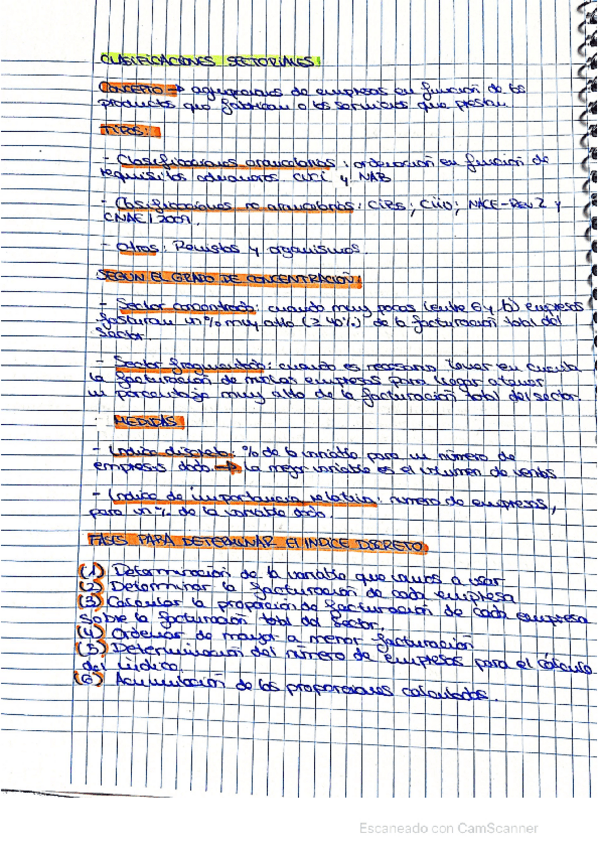 CLASIFICACIONES SECTORIALES:
CONCEPTO → agrupaciones de empresas en función de los
productos que fabrican o los servicios que prestan.
TIPOS:
- Clasificaciones arancelarias: ordenación en función de
requisitos aduaneros. CUCI y NAB
- Clasificaciones no arancelarias: CIBS; CIIU; NACE-Rev 2 y
CNAE/2009.
- Otros: Revistas y organismos.
SEGÚN EL GRADO DE CONCENTRACIÓN:
- Sector concentrado: cuando muy pocas (entre 6 y 8) empresas
facturan un % muy alto (≥ 40%) de la facturación total del
sector.
- Sector fragmentado: cuando es necesario tener en cuenta
la facturación de muchas empresas para llegar a tener
un porcentaje muy alto de la facturación total del sector.
MEDIDAS
- Índice discreto: % de la variable para un número de
empresas dado. → La mejor variable es el volumen de ventas
- Índice de importancia relativa: número de empresas,
para un % de la variable dado.
FASES PARA DETERMINAR EL INDICE DISCRETO
(1) Determinación de la variable que vamos a usar
(2) Determinar la facturación de cada empresa
(3) Calcular la proporción de facturación de cada empresa
sobre la facturación total del sector.
(4) Ordenar de mayor a menor facturación
(5) Determinación del número de empresas para el cálculo
del índice.
(6) Acumulación de las proporciones calculadas.
Escaneado con CamScanner